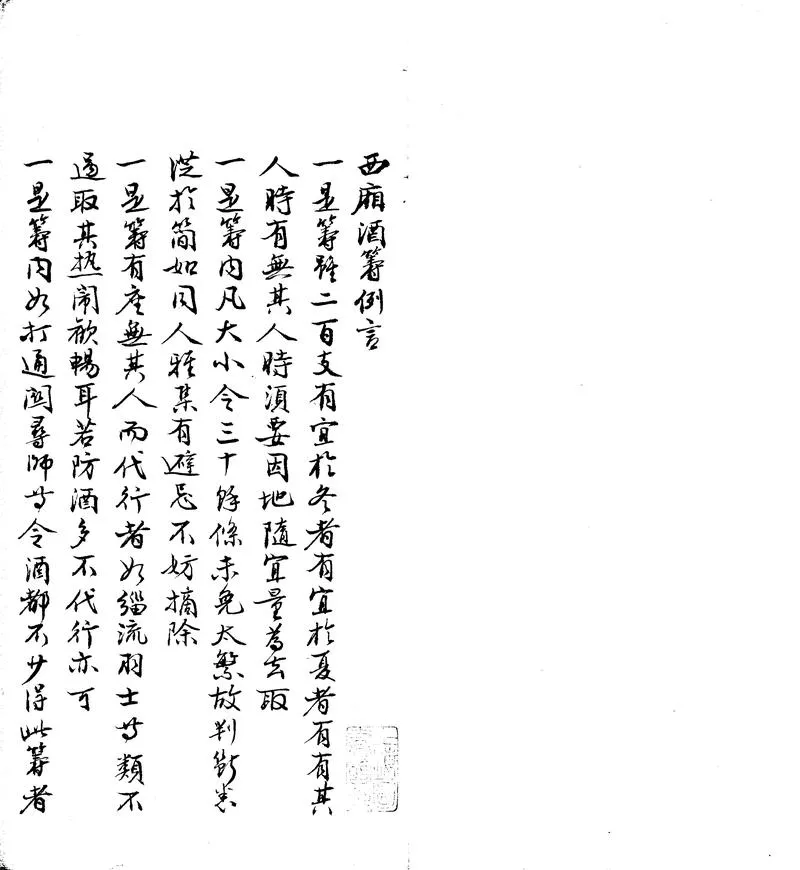 西廂酒籌例言
一是籌雖二百支有宜於冬者有宜於夏者有有其
人時有無其人時須要因地隨宜量為去取
一是籌内凡大小令三十餘條未免太繁故判斷悉
從於簡如同人雅集有避忌不妨摘除
一是籌有座無其人而代行者如緇流羽士等類不
過取其热闹歡暢耳若防酒多不代行亦可
一是籌内如打通関尋師等令酒都不少得此籌者